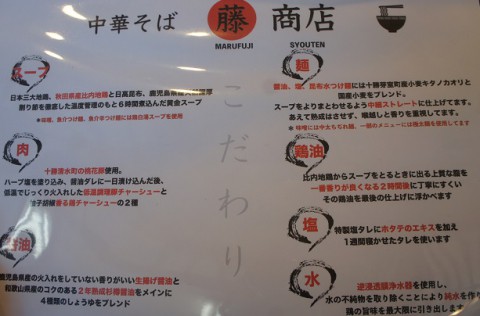 中華そば 藤 商店
MARUFUJI SYOUTEN
こだわり
スープ
日本三大地鶏、秋田県産比内地鶏と日高昆布、鹿児島県産
削り節を徹底した温度管理のもと6時間煮込んだ黄金スープ
＊味噌、魚介つけ麺、魚介辛つけ麺には鶏白湯スープを使用
肉
十勝清水町の桃花豚使用。
ハーブ塩を塗り込み、醤油ダレに一日漬け込んだ後、
低温でじっくり火入れした低温調理豚チャーシューと
子胡椒香る鶏チャーシューの２種
油
鹿児島県産の火入れをしていない香りがいい生揚げ醤油と
和歌山県産のコクのある２年熟成杉樽醤油をメインに
４種類のしょうゆをブレンド
麺
醤油、塩、昆布水つけ麺には十勝芽室町産小麦キタノカオリと
国産小麦をブレンド。
スープをよりまとわせるよう中細ストレートに仕上げてます。
あえて熟成はさせず、喉越しと香りを重視してます。
＊味噌には中太ちぢれ麺、一部のメニューには極太麺を使用してます
鶏油
比内地鶏からスープをとるときに出る上質な脂を
一番香りが良くなる２時間後に丁寧にすくい
その鶏油を最後の仕上げに浮かべます
塩
特製塩タレにホタテのエキスを加え
１週間寝かせたタレを使います
水
逆浸透膜浄水器を使用し、
水の不純物を取り除くことにより純水を作り
鶏の旨味を最大限に引き出します